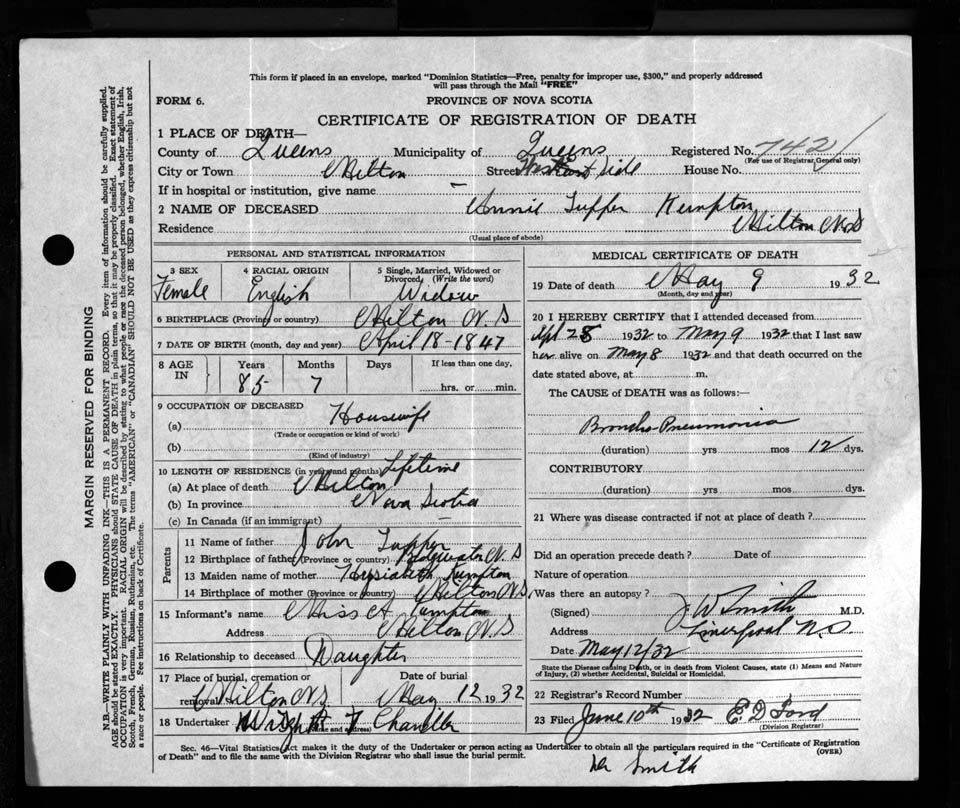 This form if placed in an envelope, marked "Dominion Statistics—Free, penalty for improper use, $300," and properly addressed
will pass through the Mail "FREE"
FORM 6.
PROVINCE OF NOVA SCOTIA
CERTIFICATE OF REGISTRATION OF DEATH
1 PLACE OF DEATH—
County of Queens Municipality of Queens Registered No. 742
(For use of Registrar General only)
City or Town Milton Street Side House No.
If in hospital or institution, give name —
2 NAME OF DECEASED Annie Tupper Kempton
Residence Milton N.S
(Usual place of abode)
PERSONAL AND STATISTICAL INFORMATION
3 SEX 4 RACIAL ORIGIN 5 Single, Married, Widowed or Divorced (Write the word)
Female English Widow
6 BIRTHPLACE (Province or country) Milton N. S
7 DATE OF BIRTH (month, day and year) April 18 - 1847
8 AGE IN Years Months Days If less than one day,
85 7 hrs. or min.
9 OCCUPATION OF DECEASED
(a) Housewife
(Trade or occupation or kind of work)
(b)
(Kind of industry)
10 LENGTH OF RESIDENCE (in years and months) Lifetime
(a) At place of death Milton
(b) In province Nova Scotia
(c) In Canada (if an immigrant)
Parents
11 Name of father John Tupper
12 Birthplace of father (Province or country) N. S
13 Maiden name of mother Kempton
14 Birthplace of mother (Province or country) Milton N.S.
15 Informant's name Miss Kempton
Address Milton N. S
16 Relationship to deceased Daughter
17 Place of burial, cremation or removal Date of burial
Milton N.S May 12 1932
18 Undertaker Wright F Chandler
(Name and address)
MEDICAL CERTIFICATE OF DEATH
19 Date of death May 9 1932
(Month, day and year)
20 I HEREBY CERTIFY that I attended deceased from
Apl 28 1932 to May 9 1932 that I last saw
her alive on May 8 1932 and that death occurred on the
date stated above, at m.
The CAUSE of DEATH was as follows:—
Broncho-Pneumonia
(duration) yrs mos 12 dys.
CONTRIBUTORY
(duration) yrs mos dys.
21 Where was disease contracted if not at place of death?
Did an operation precede death? Date of
Nature of operation
Was there an autopsy?
(Signed) J W Smith M.D.
Address Liverpool N.S.
Date May 12/32
State the Disease causing Death, or in death from Violent Causes, state (1) Means and Nature
of Injury, (2) whether Accidental, Suicidal or Homicidal.
22 Registrar's Record Number
23 Filed June 10th 1932 E D Ford
(Division Registrar)
Sec. 46—Vital Statistics Act makes it the duty of the Undertaker or person acting as Undertaker to obtain all the particulars required in the "Certificate of Registration
of Death" and to file the same with the Division Registrar who shall issue the burial permit. (OVER)
Dr Smith
MARGIN RESERVED FOR BINDING
N.B.—WRITE PLAINLY WITH UNFADING INK—THIS IS A PERMANENT RECORD. Every item of information should be carefully supplied.
AGE should be stated EXACTLY. PHYSICIANS should STATE CAUSE OF DEATH in plain terms, so that it may be properly classified. Exact statement of
OCCUPATION is very important. RACIAL ORIGIN will be described by stating to what people or race the deceased person belonged, whether English, Irish,
Scotch, French, German, Russian, Ruthenian, etc. The terms "AMERICAN" or "CANADIAN" SHOULD NOT BE USED as they express citizenship but not
a race or people. See instructions on back of Certificate.